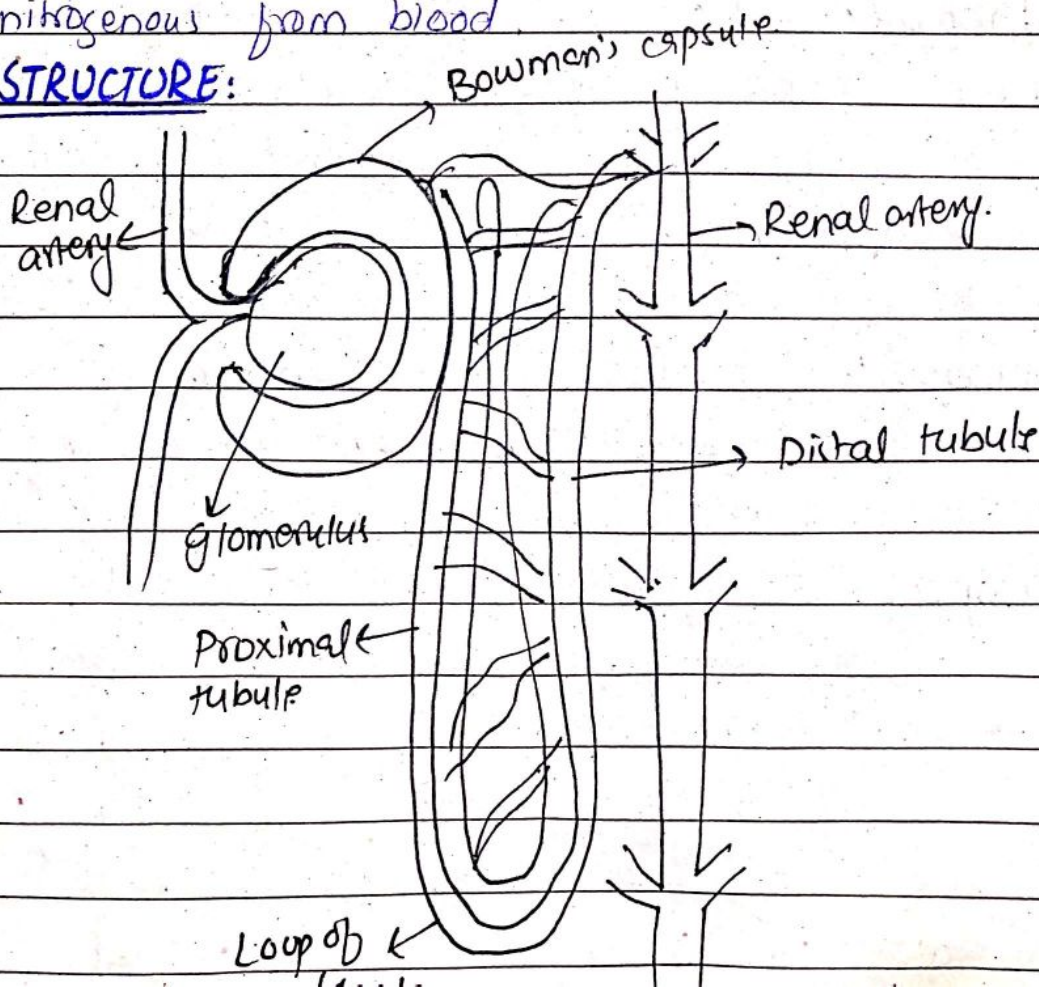 nitrogenous from blood.
STRUCTURE:
Bowman's capsule
Renal
artery
Renal artery.
Distal tubule
glomerulus
Proximal
tubule
Loop of